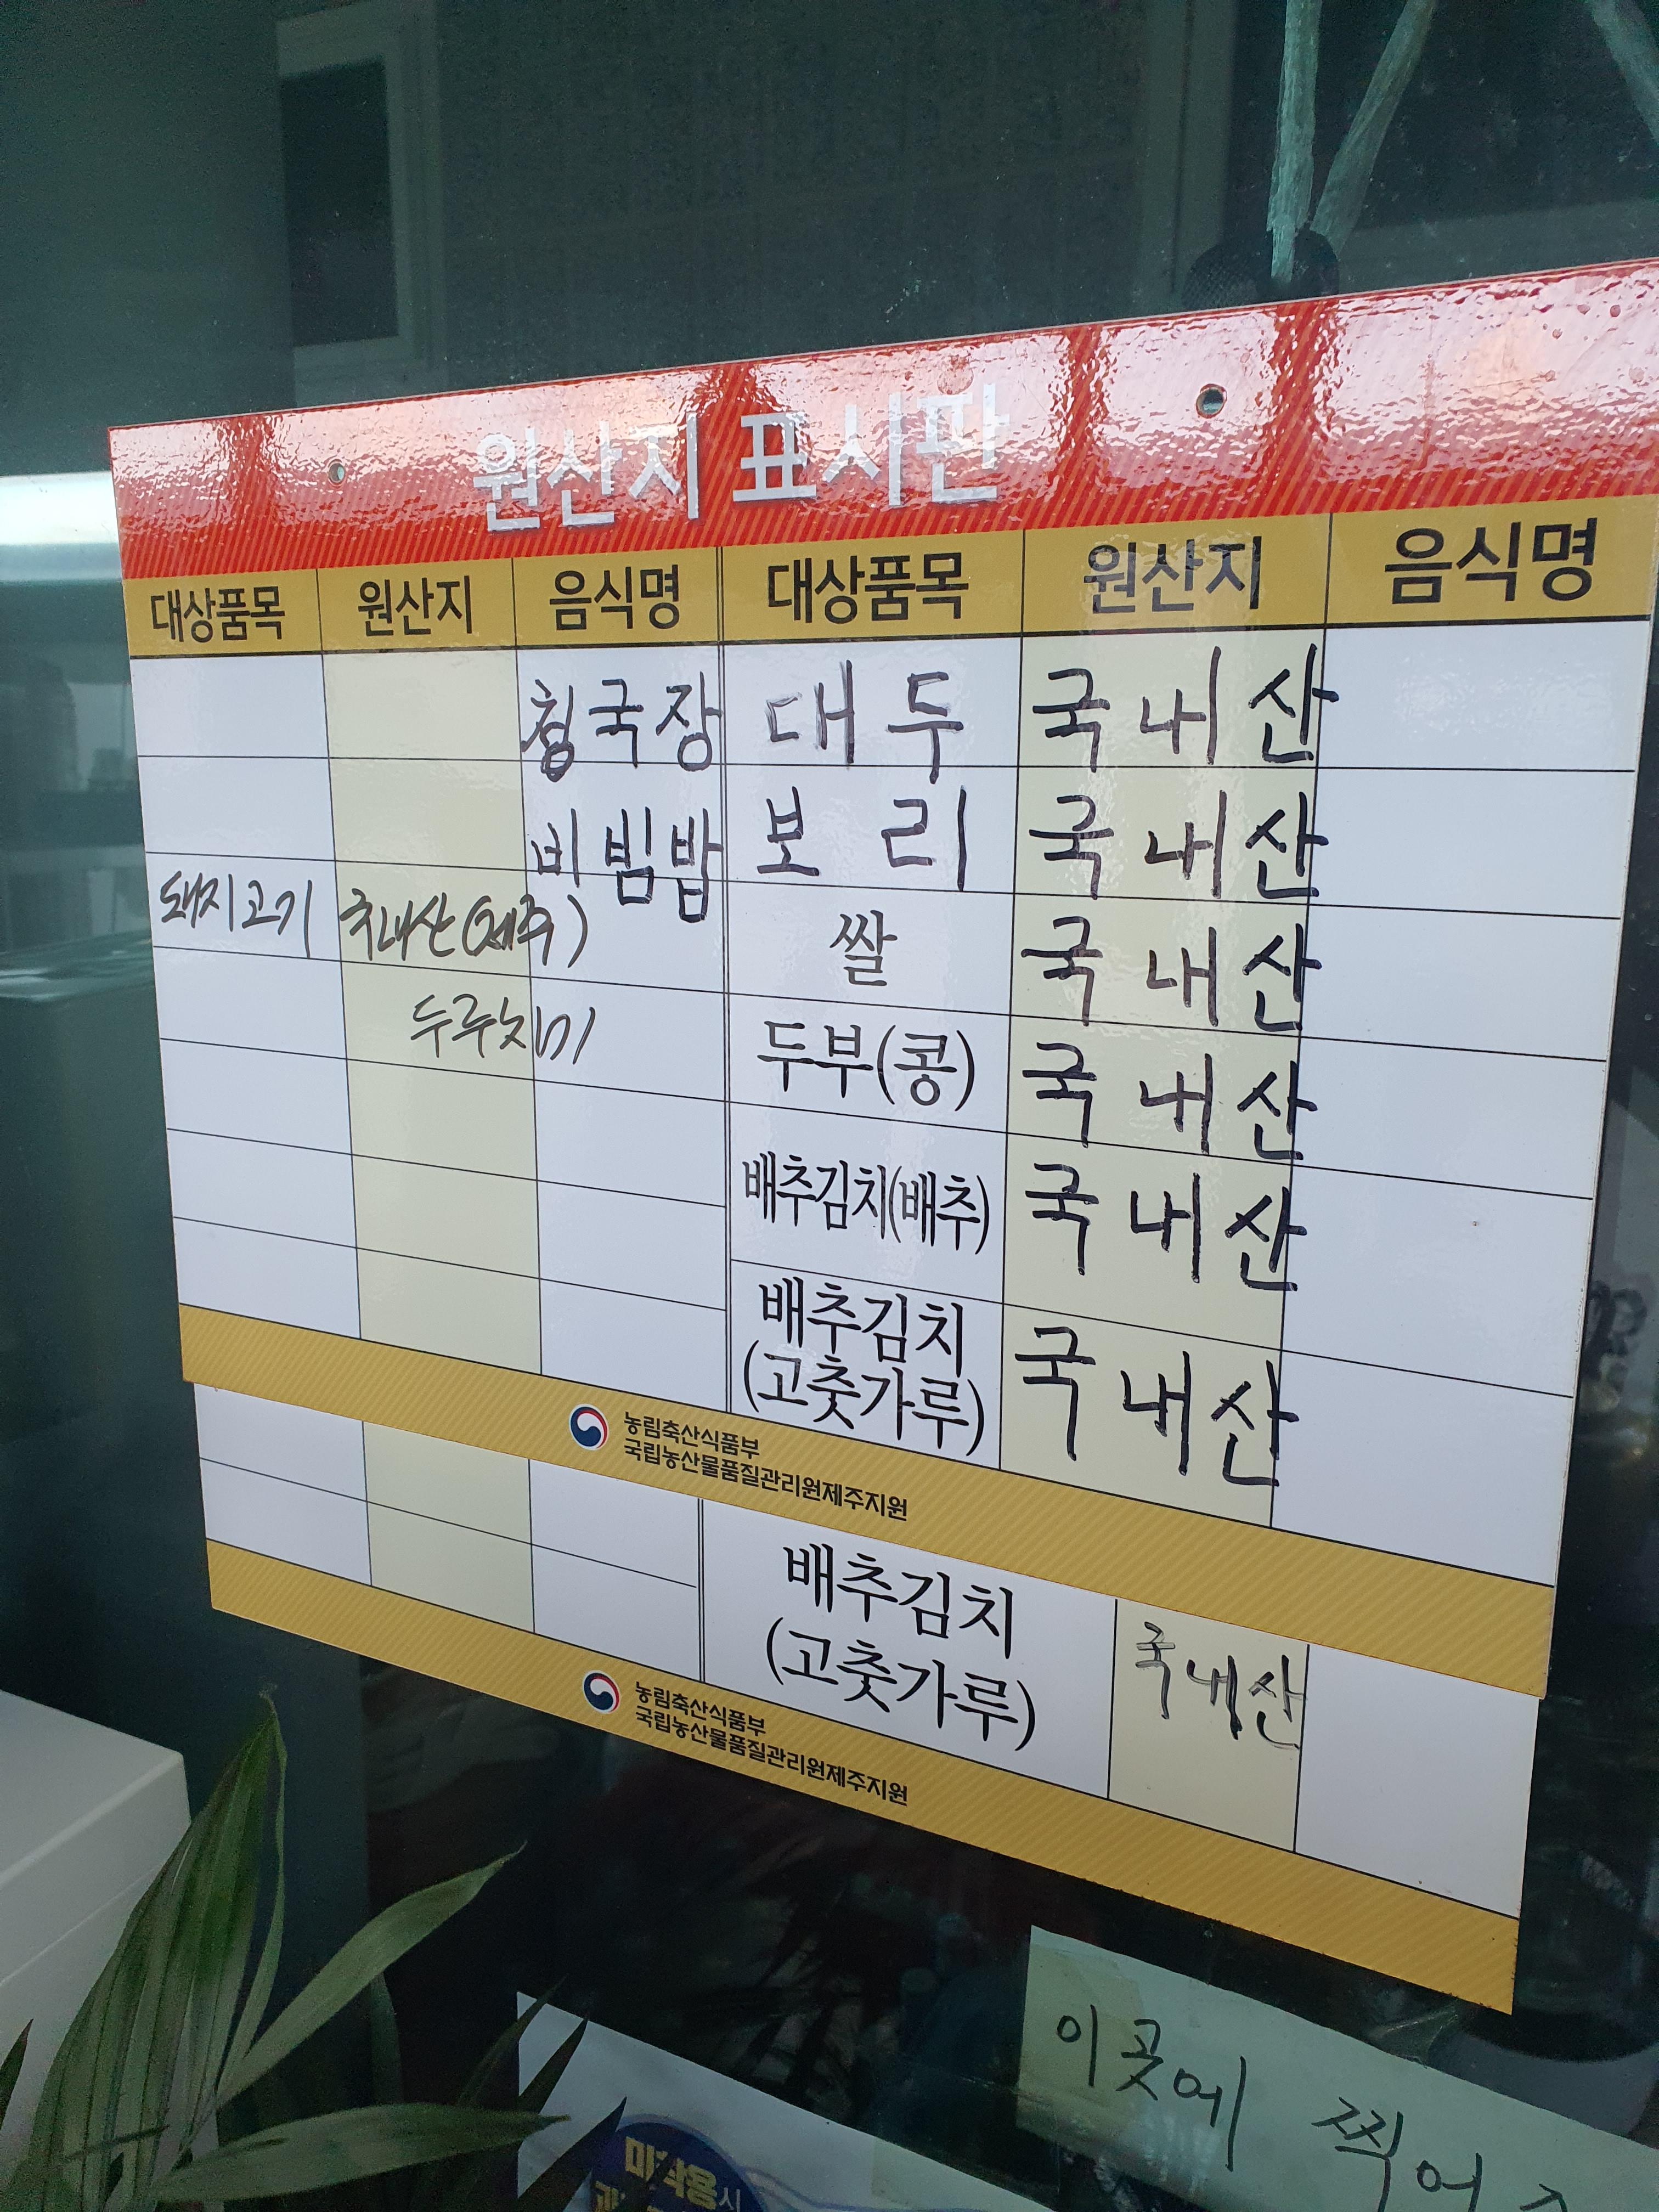 원산지 표시판
대상품목 원산지 음식명 대상품목 원산지 음식명
청국장 대두 국내산
비빔밥 보리 국내산
돼지고기 국내산(제주) 쌀 국내산
두루치기 두부(콩) 국내산
배추김치(배추) 국내산
배추김치
(고춧가루) 국내산
농림축산식품부
국립농산물품질관리원제주지원
배추김치
(고춧가루) 국내산
농림축산식품부
국립농산물품질관리원제주지원
이곳에 찍어
미착용시